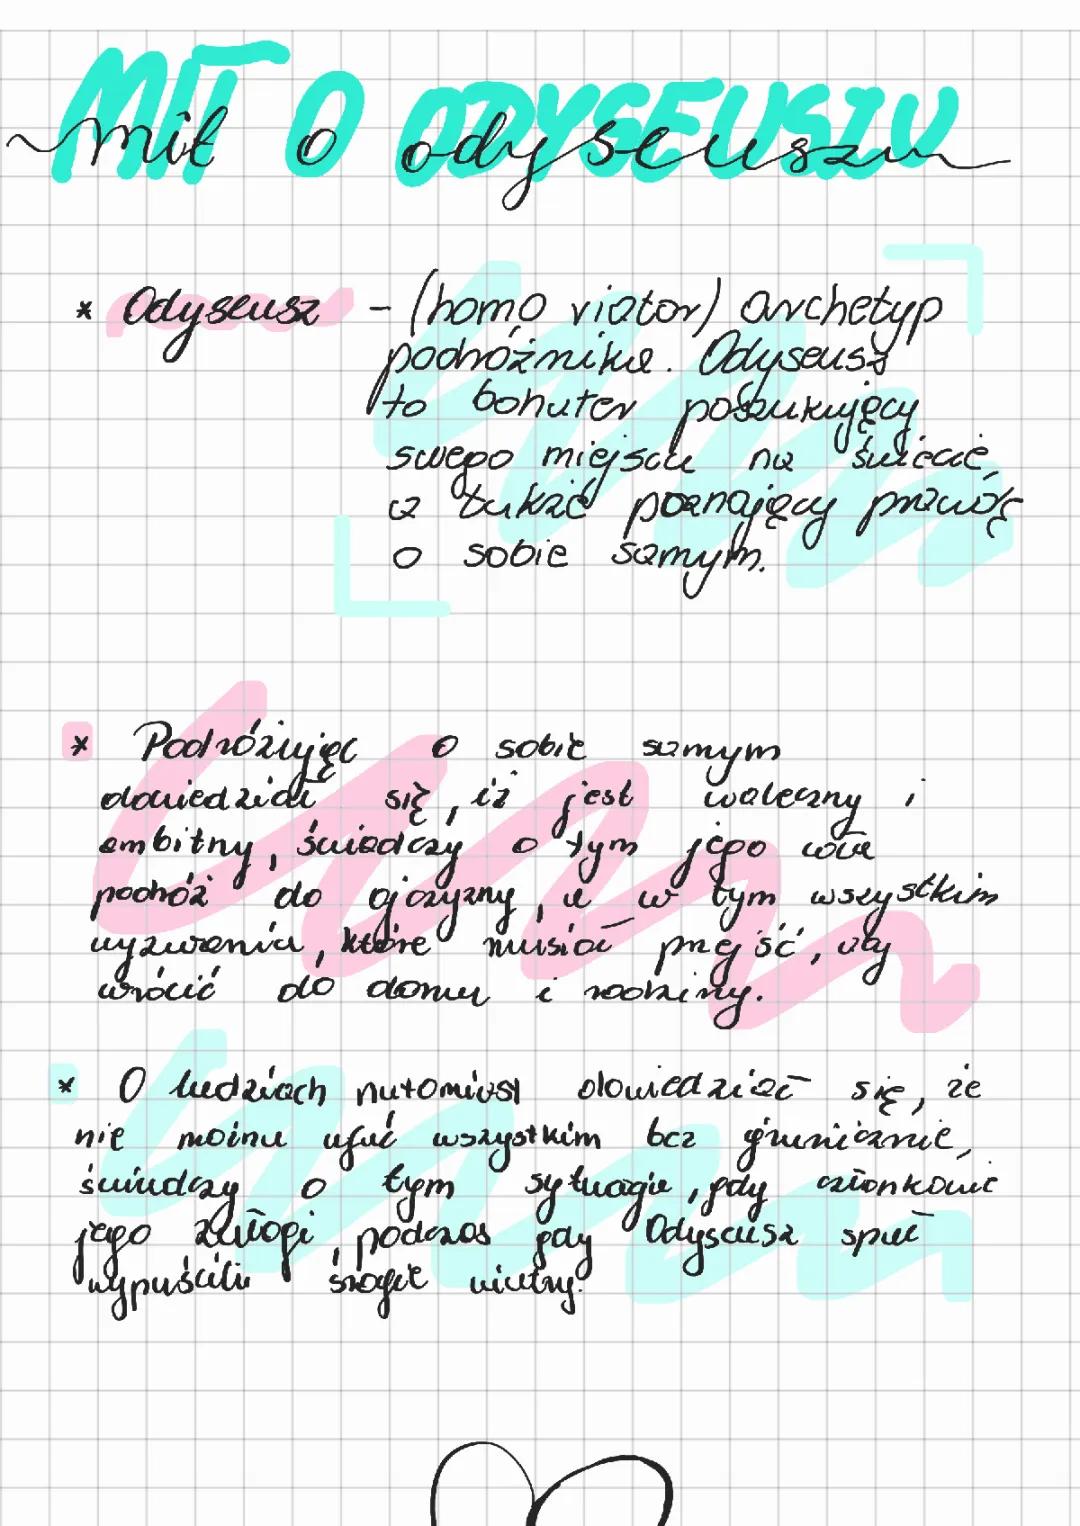 MIT O ODYSEUSZU
mit o odyseuszu
* Odyseusz - (homo viator) archetyp
podróżnika. Odyseusz
to bohater poszukujący
swego miejsca na świecie,
a także poznający prawdę
o sobie samym.
* Podróżując o sobie samym
dowiedział się, iż jest waleczny i
ambitny, świadczy o tym jego cała
podróż do ojczyzny, a w tym wszystkim
wyzwania, które musiał przejść, aby
wrócić do domu i rodziny.
* O ludziach natomiast dowiedział się, że
nie można ufać wszystkim bez granicznie,
świadczy o tym sytuacja, gdy członkowie
jego załogi, podczas gdy Odyseusz spał
wypuścili srogie wiatry.